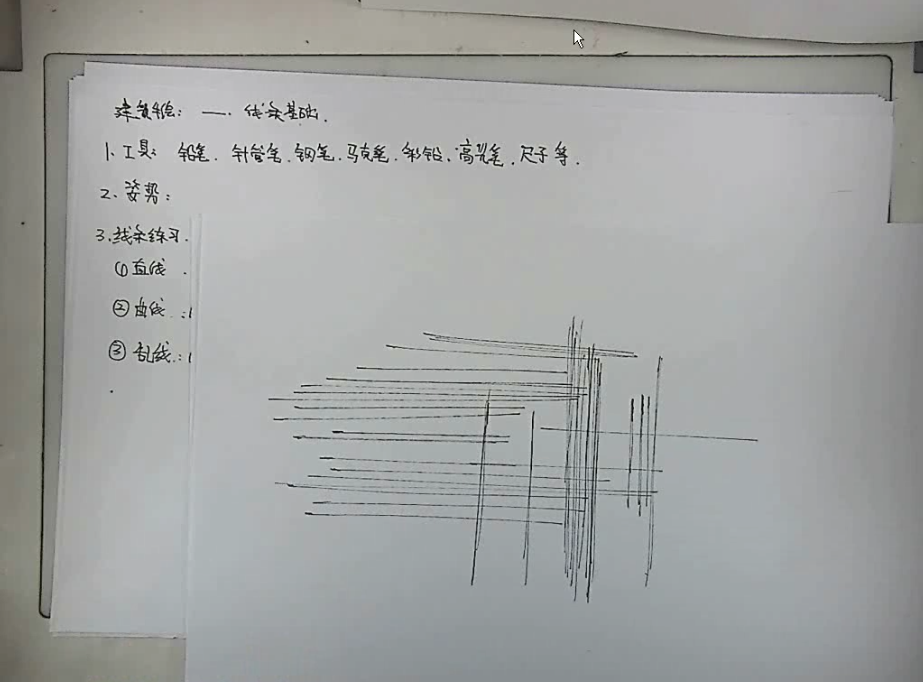 建筑手绘：一. 线条基础.
1、工具：铅笔. 针管笔. 钢笔. 马克笔. 彩铅. 高光笔. 尺子等.
2、姿势：
3.线条练习.
①直线 .
②曲线.：
③乱线.：